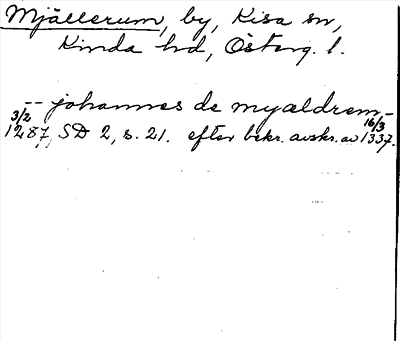 Mjällerum, by, Kisa sn,
Kinda hd, Österg. l.
-- johannes de myældrem --
3/2 1287, SD 2, s. 21. efter bekr. avskr. av 16/3 1337.